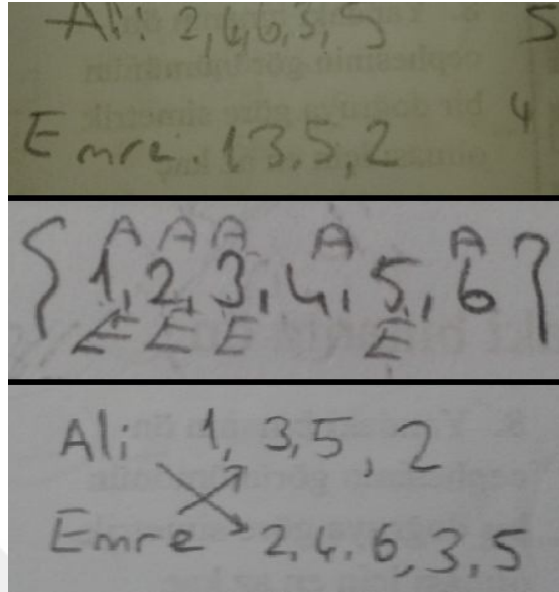 Ali: 2,4,6,3,5 5
Emre: 1,3,5,2 4
A A A A A
{1,2,3,4,5,6}
E E E E
Ali 1,3,5,2
Emre 2,4,6,3,5